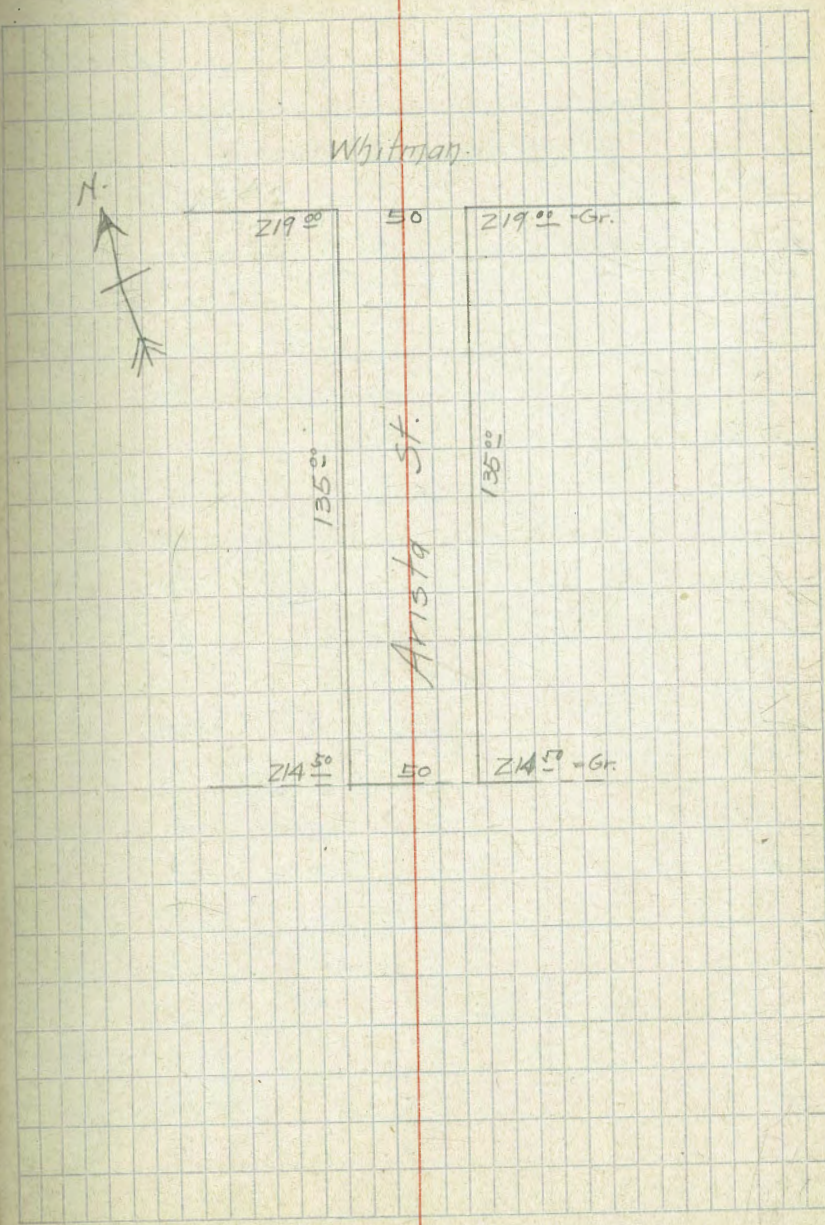 Whitman.
N.
219 00 50 219 00 - Gr.
135 00
Arista St.
135 00
214 50 50 214 50 - Gr.